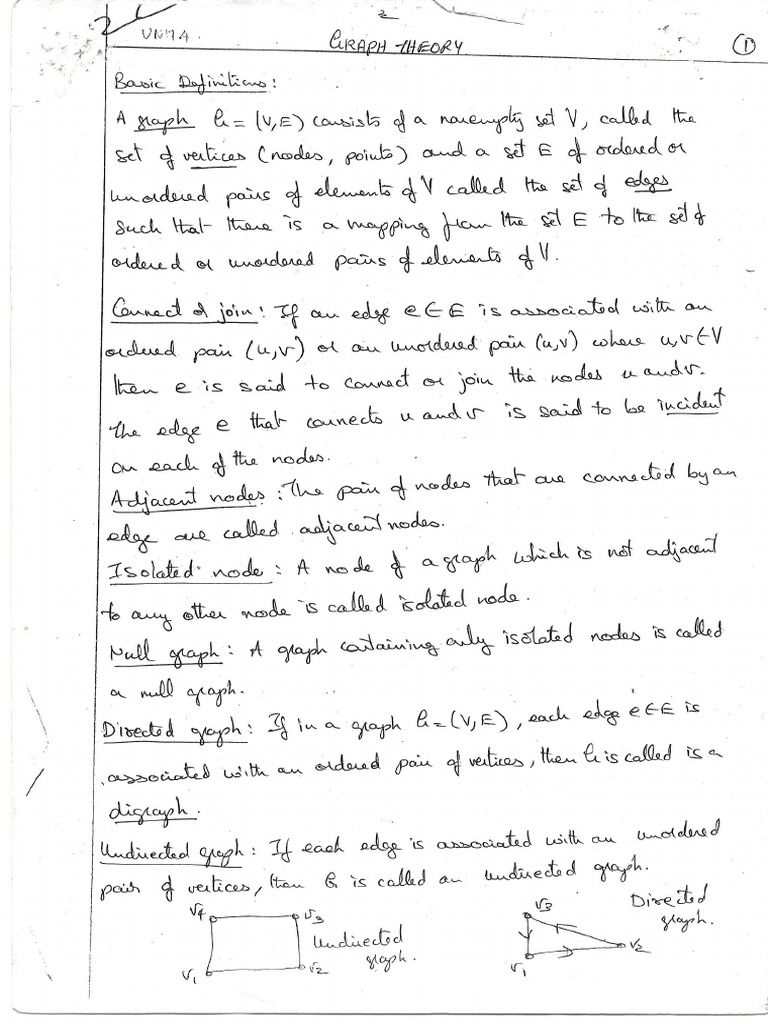 2
GRAPH THEORY
1
Basic Definitions:
A graph G = (V,E) consists of a nonempty set V, called the
set of vertices (nodes, points) and a set E of ordered or
unordered pairs of elements of V called the set of edges
such that there is a mapping from the set E to the set of
ordered or unordered pairs of elements of V.
Connect or join: If an edge e∈E is associated with an
ordered pair (u,v) or an unordered pair (u,v) where u,v∈V
then e is said to connect or join the nodes u and v.
The edge e that connects u and v is said to be incident
on each of the nodes.
Adjacent nodes: The pair of nodes that are connected by an
edge are called adjacent nodes.
Isolated node: A node of a graph which is not adjacent
to any other node is called isolated node.
Null graph: A graph containing only isolated nodes is called
a null graph.
Directed graph: If in a graph G=(V,E), each edge e∈E is
associated with an ordered pair of vertices, then G is called is a
digraph.
Undirected graph: If each edge is associated with an unordered
pair of vertices, then G is called an undirected graph.
v4 v3 Undirected graph. v1 v2
v3 Directed graph. v1 v2